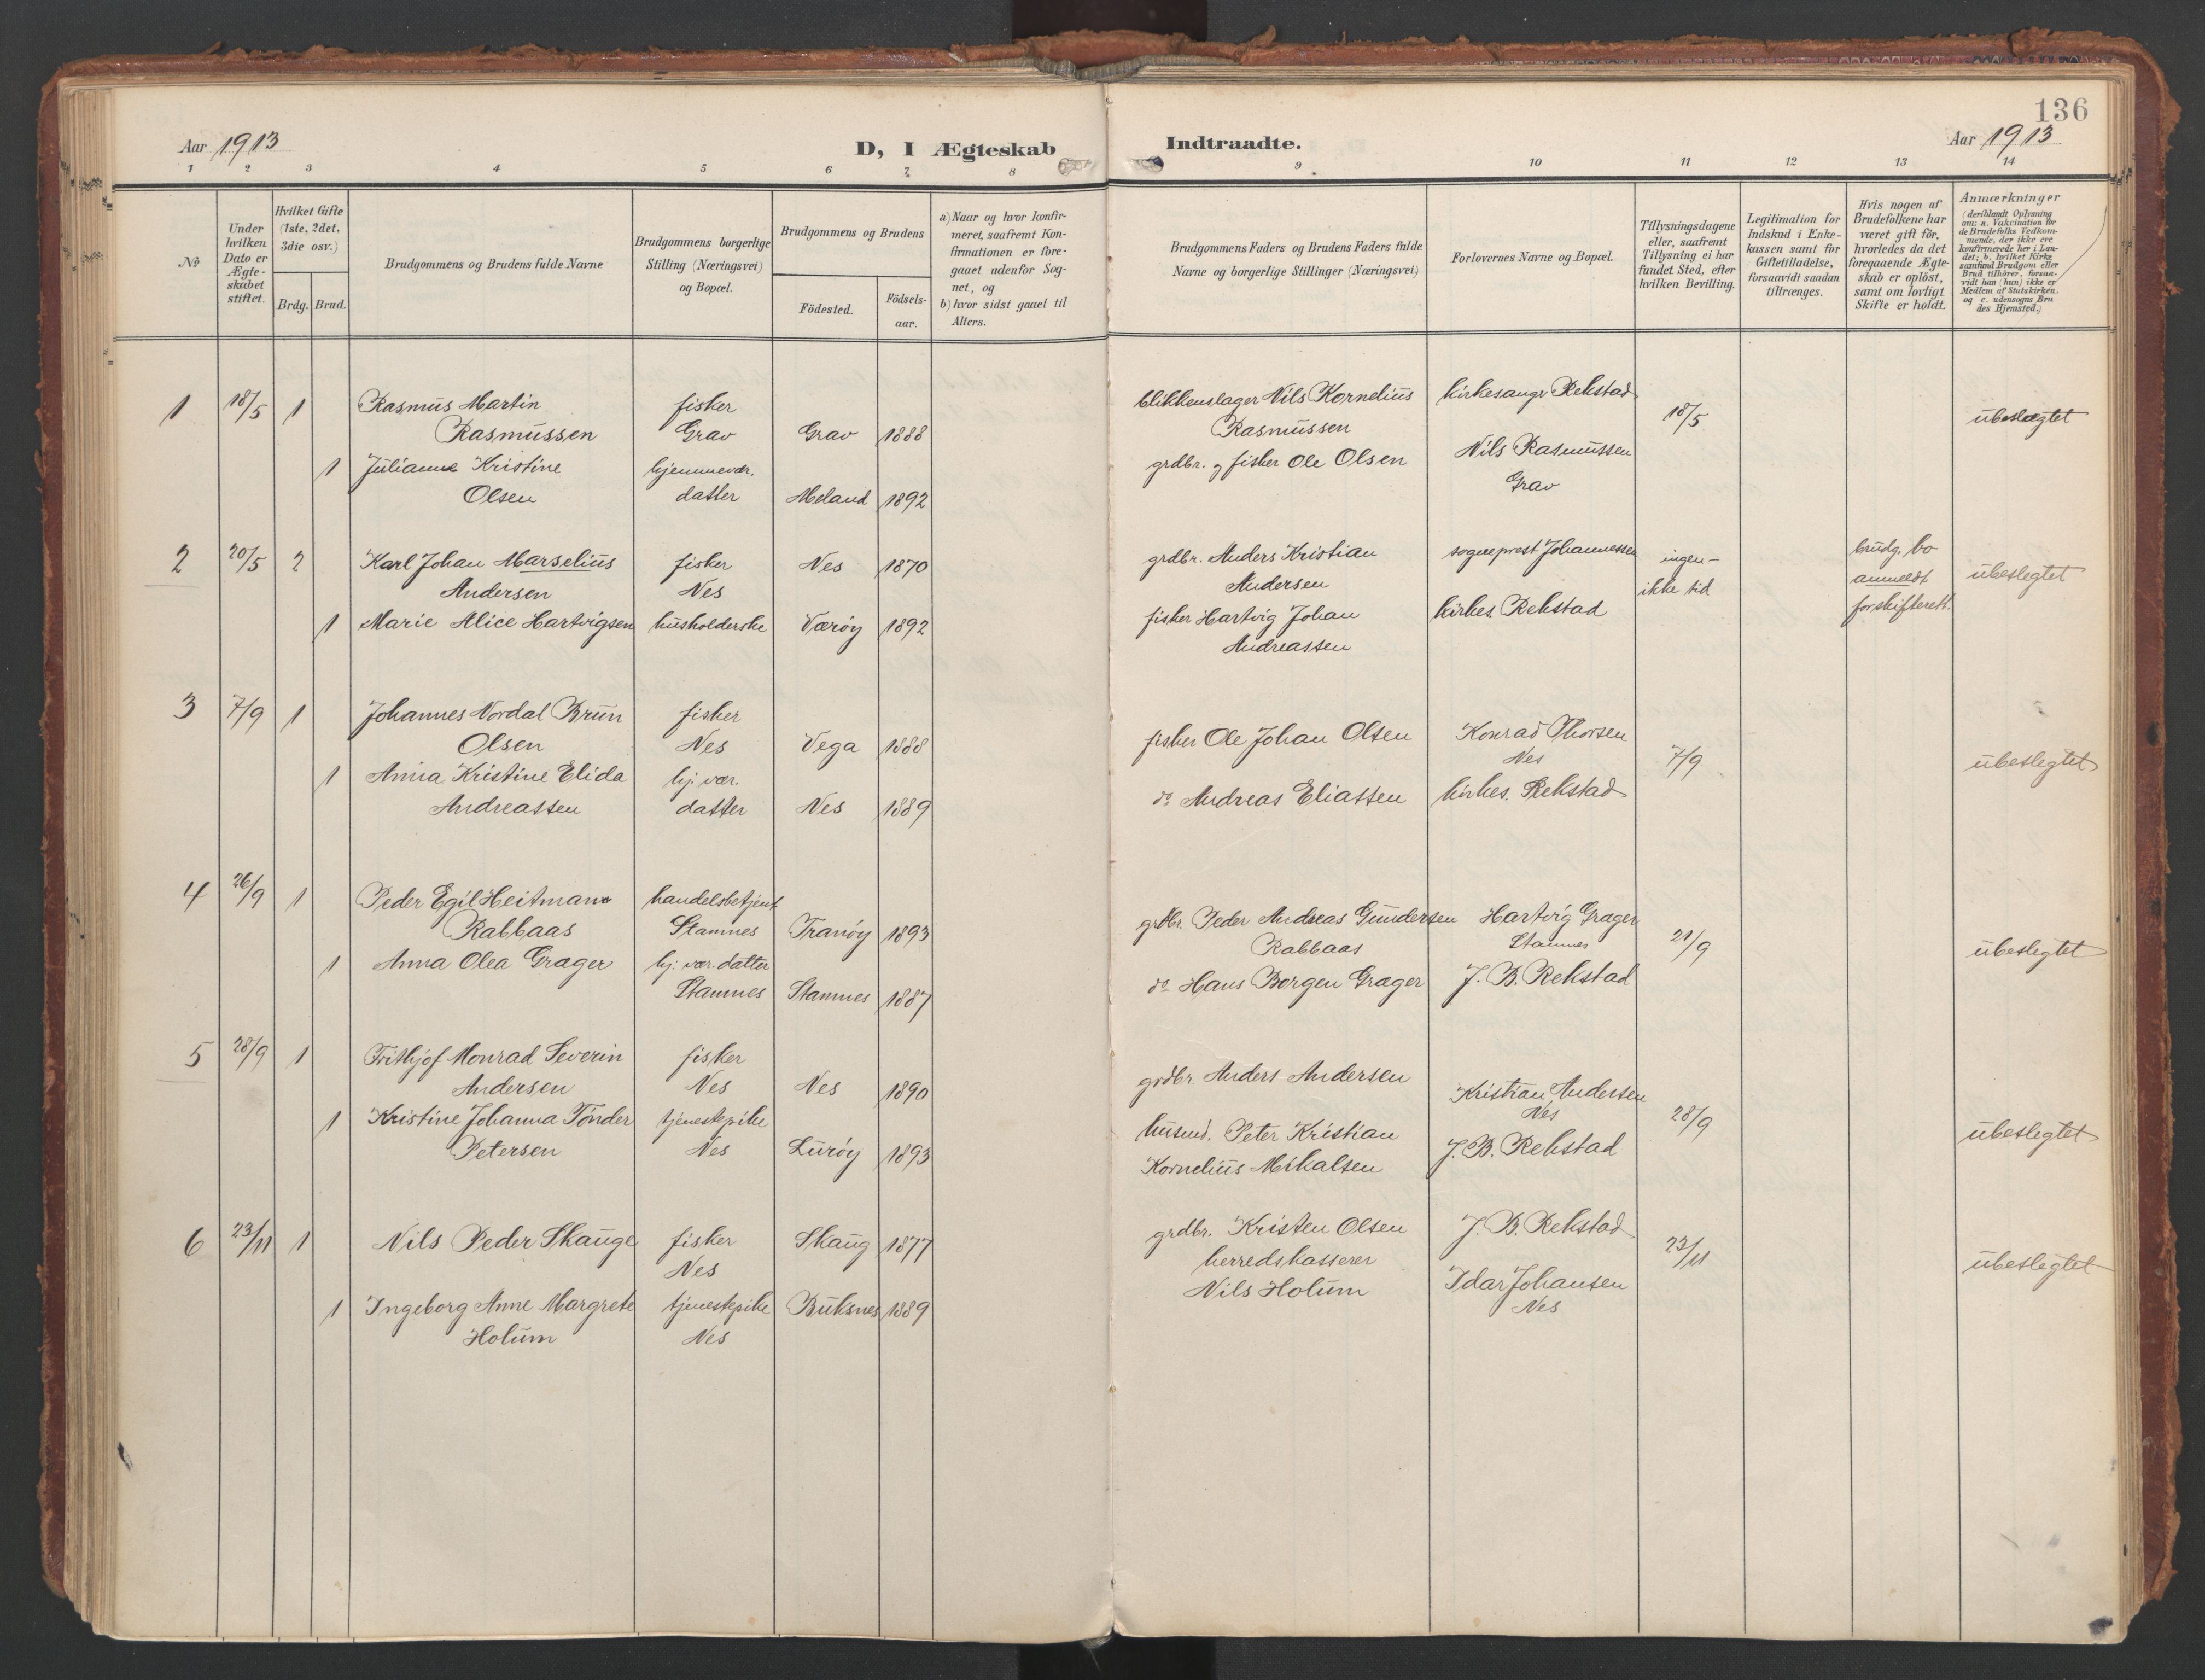 136
Aar 1913
D, I Ægteskab
Indtraadte.
Aar 1913
1 2 3 4 5 6 7 8 9 10 11 12 13 14
No
Under hvilken Dato er Ægte-skabet stiftet.
Hvilket Gifte (1ste, 2det, 3die osv.)
Brdg. Brud.
Brudgommens og Brudens fulde Navne
Brudgommens borgerlige Stilling (Næringsvei) og Bopæl.
Brudgommens og Brudens
Fødested.
Fødsels-aar.
a) Naar og hvor konfir-meret, saafremt Kon-firmationen er fore-gaaet udenfor Sog-net, og
b) hvor sidst gaaet til Alters.
Brudgommens Faders og Brudens Faders fulde Navne og borgerlige Stillinger (Næringsvei)
Forlovernes Navne og Bopæl.
Tillysningsdagene eller, saafremt Tillysning ei har fundet Sted, efter hvilken Bevilling.
Legitimation for Indskud i Enke-kassen samt for Giftetilladelse, forsaavidt saadan tiltrænges.
Hvis nogen af Brudefolkene har været gift før, hvorledes da det foregaaende Ægte-skab er opløst, samt om lovligt Skifte er holdt.
Anmærkninger (deriblandt Oplysning om: a. Vakcination for de Brudefolks Vedkom-mende, der ikke ere konfirmerede her i Lan-det; b. hvilket Kirke samfund Brudgom eller Brud tilhører, forsaa-vidt han (hun) ikke er Medlem af Statskirken. og c. udensogns Bru des Hjemsted.)
1 18/5 1 Rasmus Martin fisker
Rasmussen Grav Grav 1888
1 Julianne Kristine hjemmevær.
Olsen datter Meland 1892
blikkenslager Nils Kornelius kirkesanger Rekstad
Rasmussen 18/5 ubeslægtet
grdbr. og fisker Ole Olsen Nils Rasmussen
Grav
2 20/5 2 Karl Johan Marselius fisker Nes 1870
Andersen Nes
1 Marie Alice Hartvigsen husholderske Værøy 1892
grdbr. Anders Kristian sogneprest Johannessen ingen- brudg. bo
Andersen ikke tid anmeldt ubeslegtet
fisker Hartvig Johan kirkes. Rekstad for skifterett.
Andreassen
3 7/9 1 Johannes Nordal Brun fisker
Olsen Nes Vega 1888
1 Anna Kristine Elida hj. vær.
Andreassen datter Nes 1889
fisker Ole Johan Olsen Konrad Thorsen
Nes 7/9 ubeslegtet
do Andreas Eliassen kirkes. Rekstad
4 26/9 1 Peder Egil Heitmann handelsbetjent
Rabbaas Stamnes Tranøy 1893
1 Anna Olea Grager hj. vær. datter
Stamnes Stamnes 1887
grdbr. Peder Andreas Gundersen Hartvig Grager
Rabbaas Stamnes 21/9 ubeslegtet
do Hans Borgen Grager J. B. Rekstad
5 28/9 1 Frithjof Monrad Severin fisker
Andersen Nes Nes 1890
1 Kristine Johanna Tønder tjenestepike
Petersen Nes Lurøy 1893
grdbr. Anders Andersen
Kristian Andersen
Nes 28/9 ubeslegtet
husmd. Peter Kristian
Kornelius Mikalsen J. B. Rekstad
6 23/11 1 Nils Peder Skauge fisker Skaug 1877
Nes
1 Ingeborg Anne Margrete tjenestepike Buksnes 1889
Holum Nes
grdbr. Kristen Olsen J. B. Rekstad 23/11
herredskasserer ubeslegtet
Nils Holum Idar Johansen
Nes